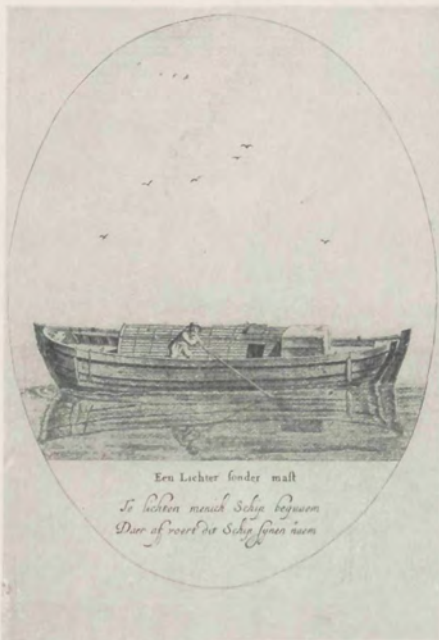 Een Lichter sonder mast
To lichten menich Schip bequaem
Daer af voert dit Schip synen naem